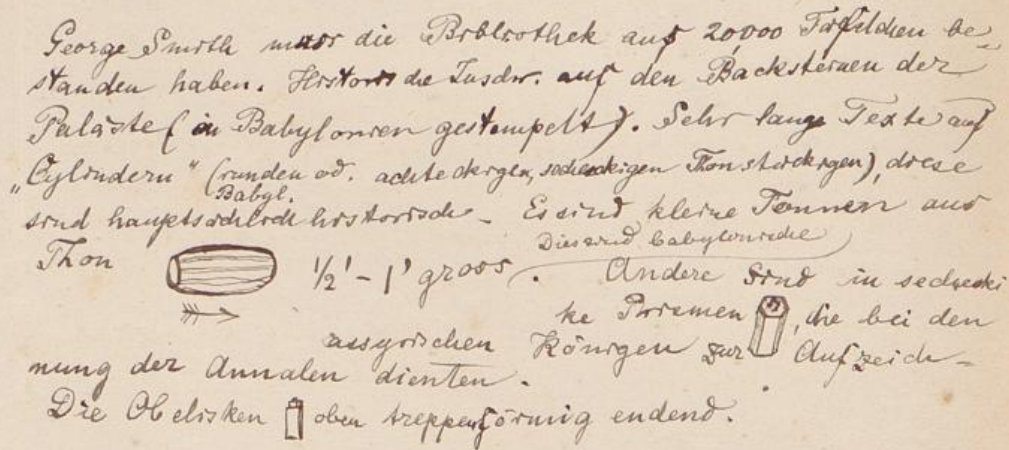 George Smith muss die Bibliothek aus 20,000 Täfelchen be-
standen haben. Historische Inschr. auf den Backsteinen der
Paläste (in Babylonien gestempelt). Sehr lange Texte auf
„Cylindern“ (runden od. achteckigen, sechseckigen Thonstückigen), diese
Babyl.
sind hauptsächlich historisch – Es sind kleine Tonnen aus
Dies sind babylonische
Thon ½' – 1' gross. Andere sind in sechsecki
ke Prismen, die bei den
assyrischen Königen zur Aufzeich-
nung der Annalen dienten.
Die Obelisken oben treppenförmig endend.